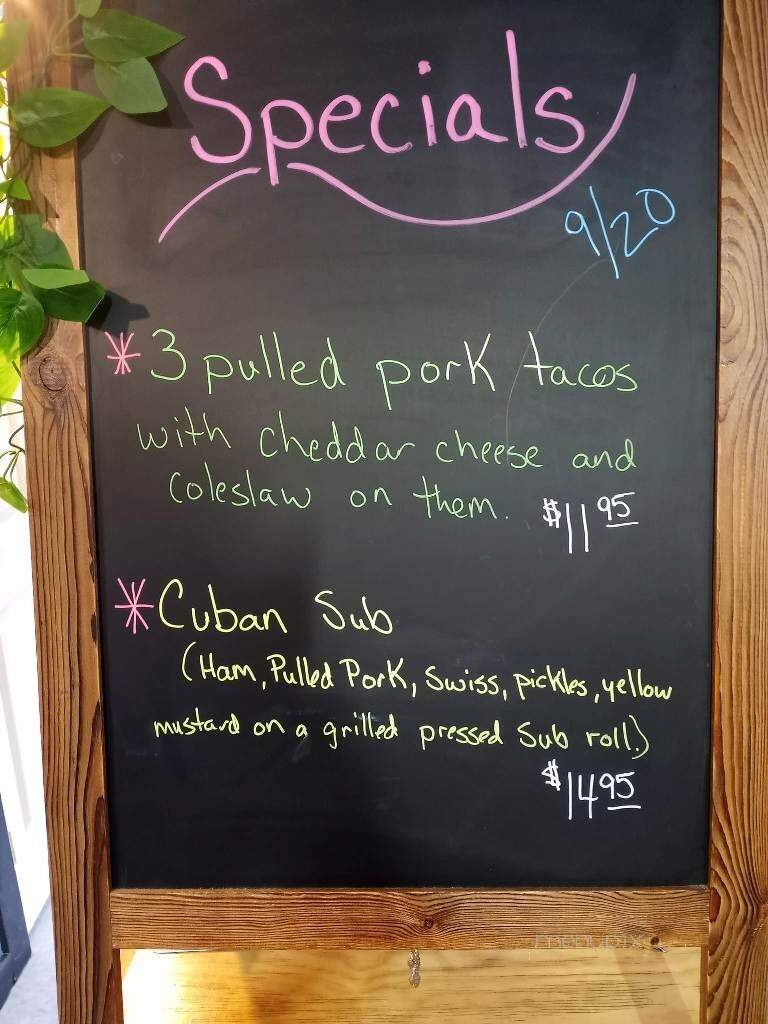 Specials
9/20
* 3 pulled pork tacos
with cheddar cheese and
coleslaw on them. $11 95
* Cuban Sub
(Ham, Pulled Pork, Swiss, pickles, yellow
mustard on a grilled pressed Sub roll.)
$14 95
menupix